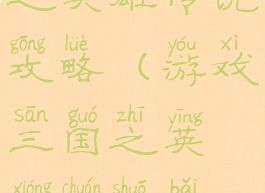 之英雄传说
gōng lüè yóu xì
攻略（游戏
sān guó zhī yīng
三国之英
xióng chuán shuō bǎi